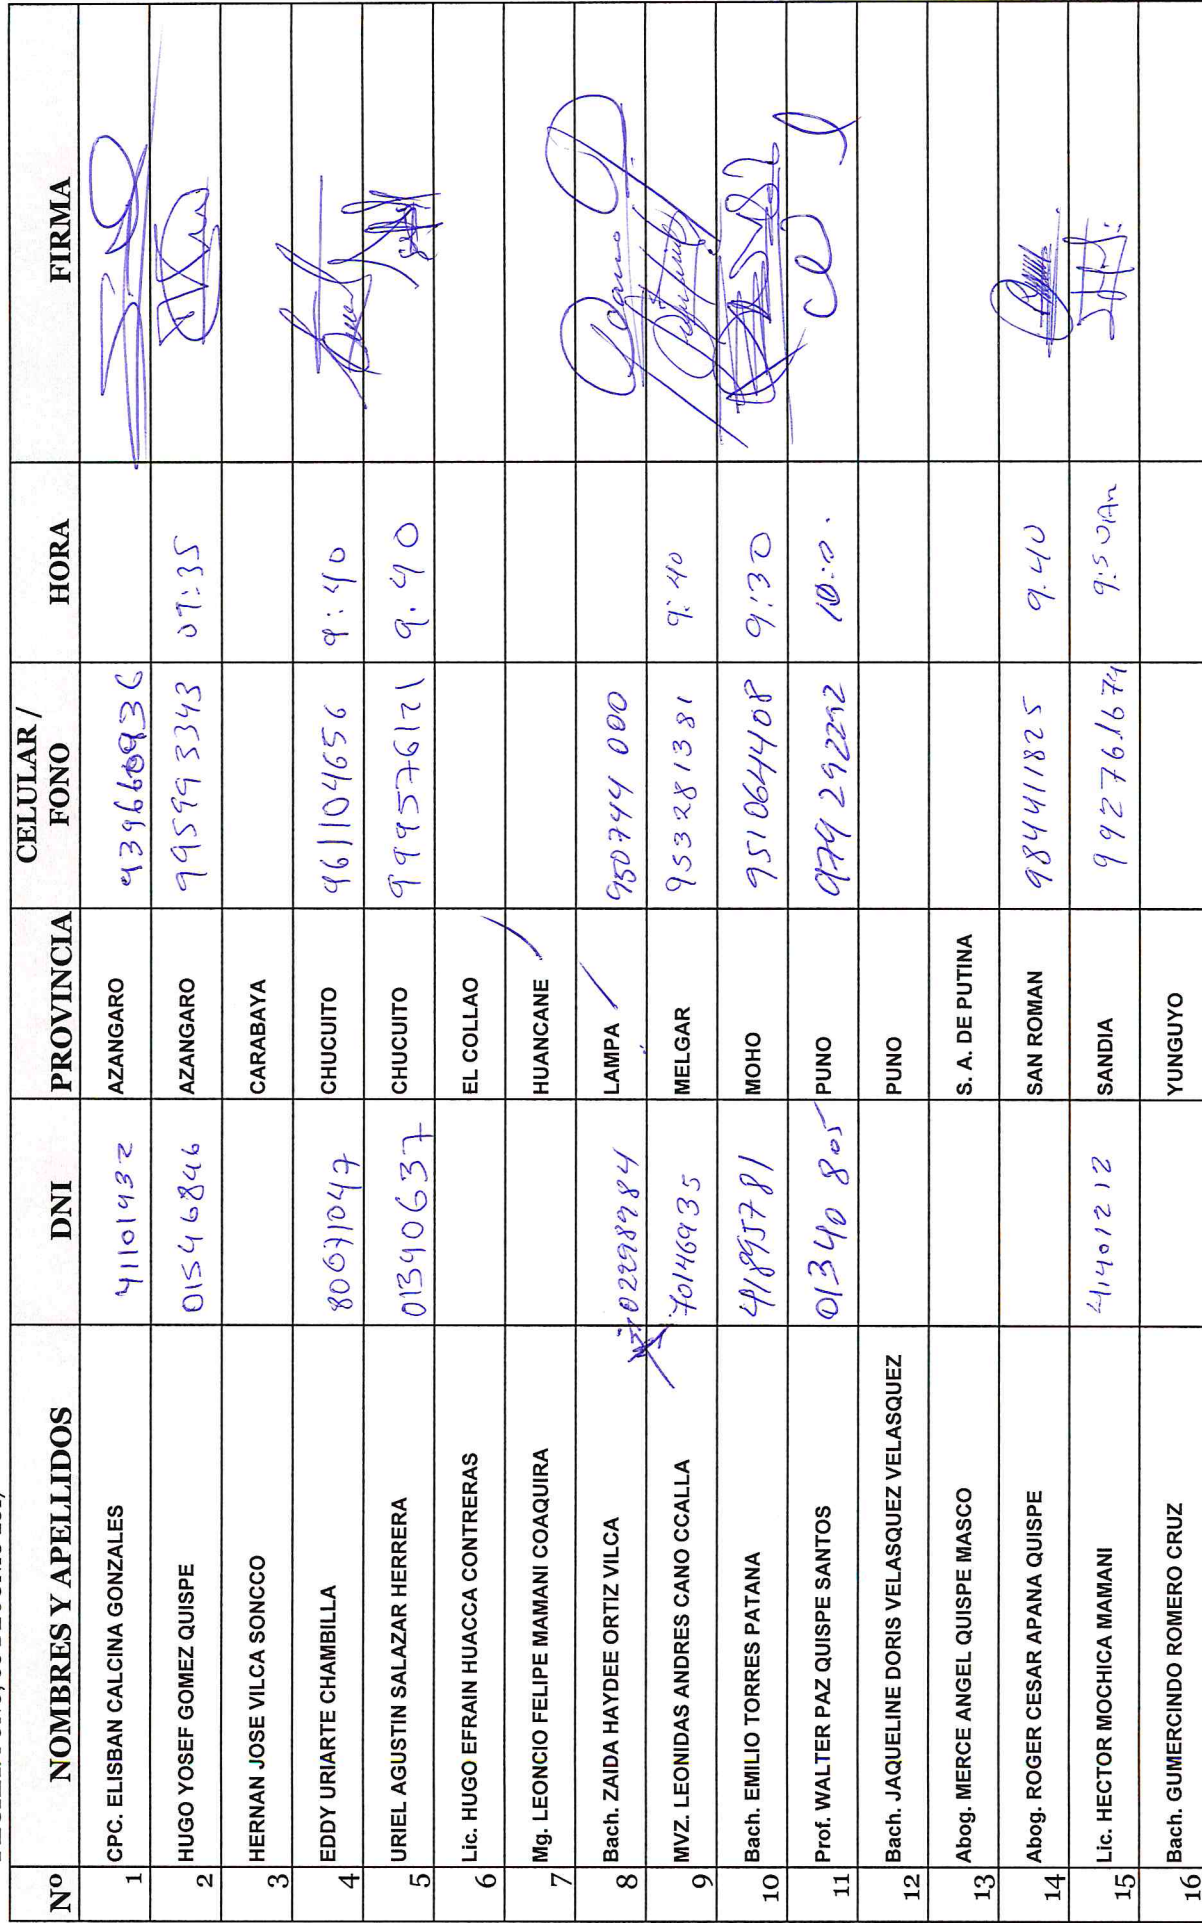 Nº NOMBRES Y APELLIDOS DNI PROVINCIA CELULAR / FONO HORA FIRMA
1 CPC. ELISBAN CALCINA GONZALES 41101932 AZANGARO
2 HUGO YOSEF GOMEZ QUISPE 01546846 AZANGARO 995993343 09:35
3 HERNAN JOSE VILCA SONCCO CARABAYA
4 EDDY URIARTE CHAMBILLA 80071047 CHUCUITO 961104656 9:40
5 URIEL AGUSTIN SALAZAR HERRERA 01340637 CHUCUITO 999576121 9.40
6 Lic. HUGO EFRAIN HUACCA CONTRERAS EL COLLAO
7 Mg. LEONCIO FELIPE MAMANI COAQUIRA HUANCANE
8 Bach. ZAIDA HAYDEE ORTIZ VILCA 02298984 LAMPA 950744000
9 MVZ. LEONIDAS ANDRES CANO CCALLA 70146935 MELGAR 953281381 9:40
10 Bach. EMILIO TORRES PATANA 41895781 MOHO 951064408 9:30
11 Prof. WALTER PAZ QUISPE SANTOS 01340805 PUNO 10:0.
12 Bach. JAQUELINE DORIS VELASQUEZ VELASQUEZ PUNO
13 Abog. MERCE ANGEL QUISPE MASCO S. A. DE PUTINA
14 Abog. ROGER CESAR APANA QUISPE SAN ROMAN 984411825 9.40
15 Lic. HECTOR MOCHICA MAMANI 41401212 SANDIA
16 Bach. GUMERCINDO ROMERO CRUZ YUNGUYO